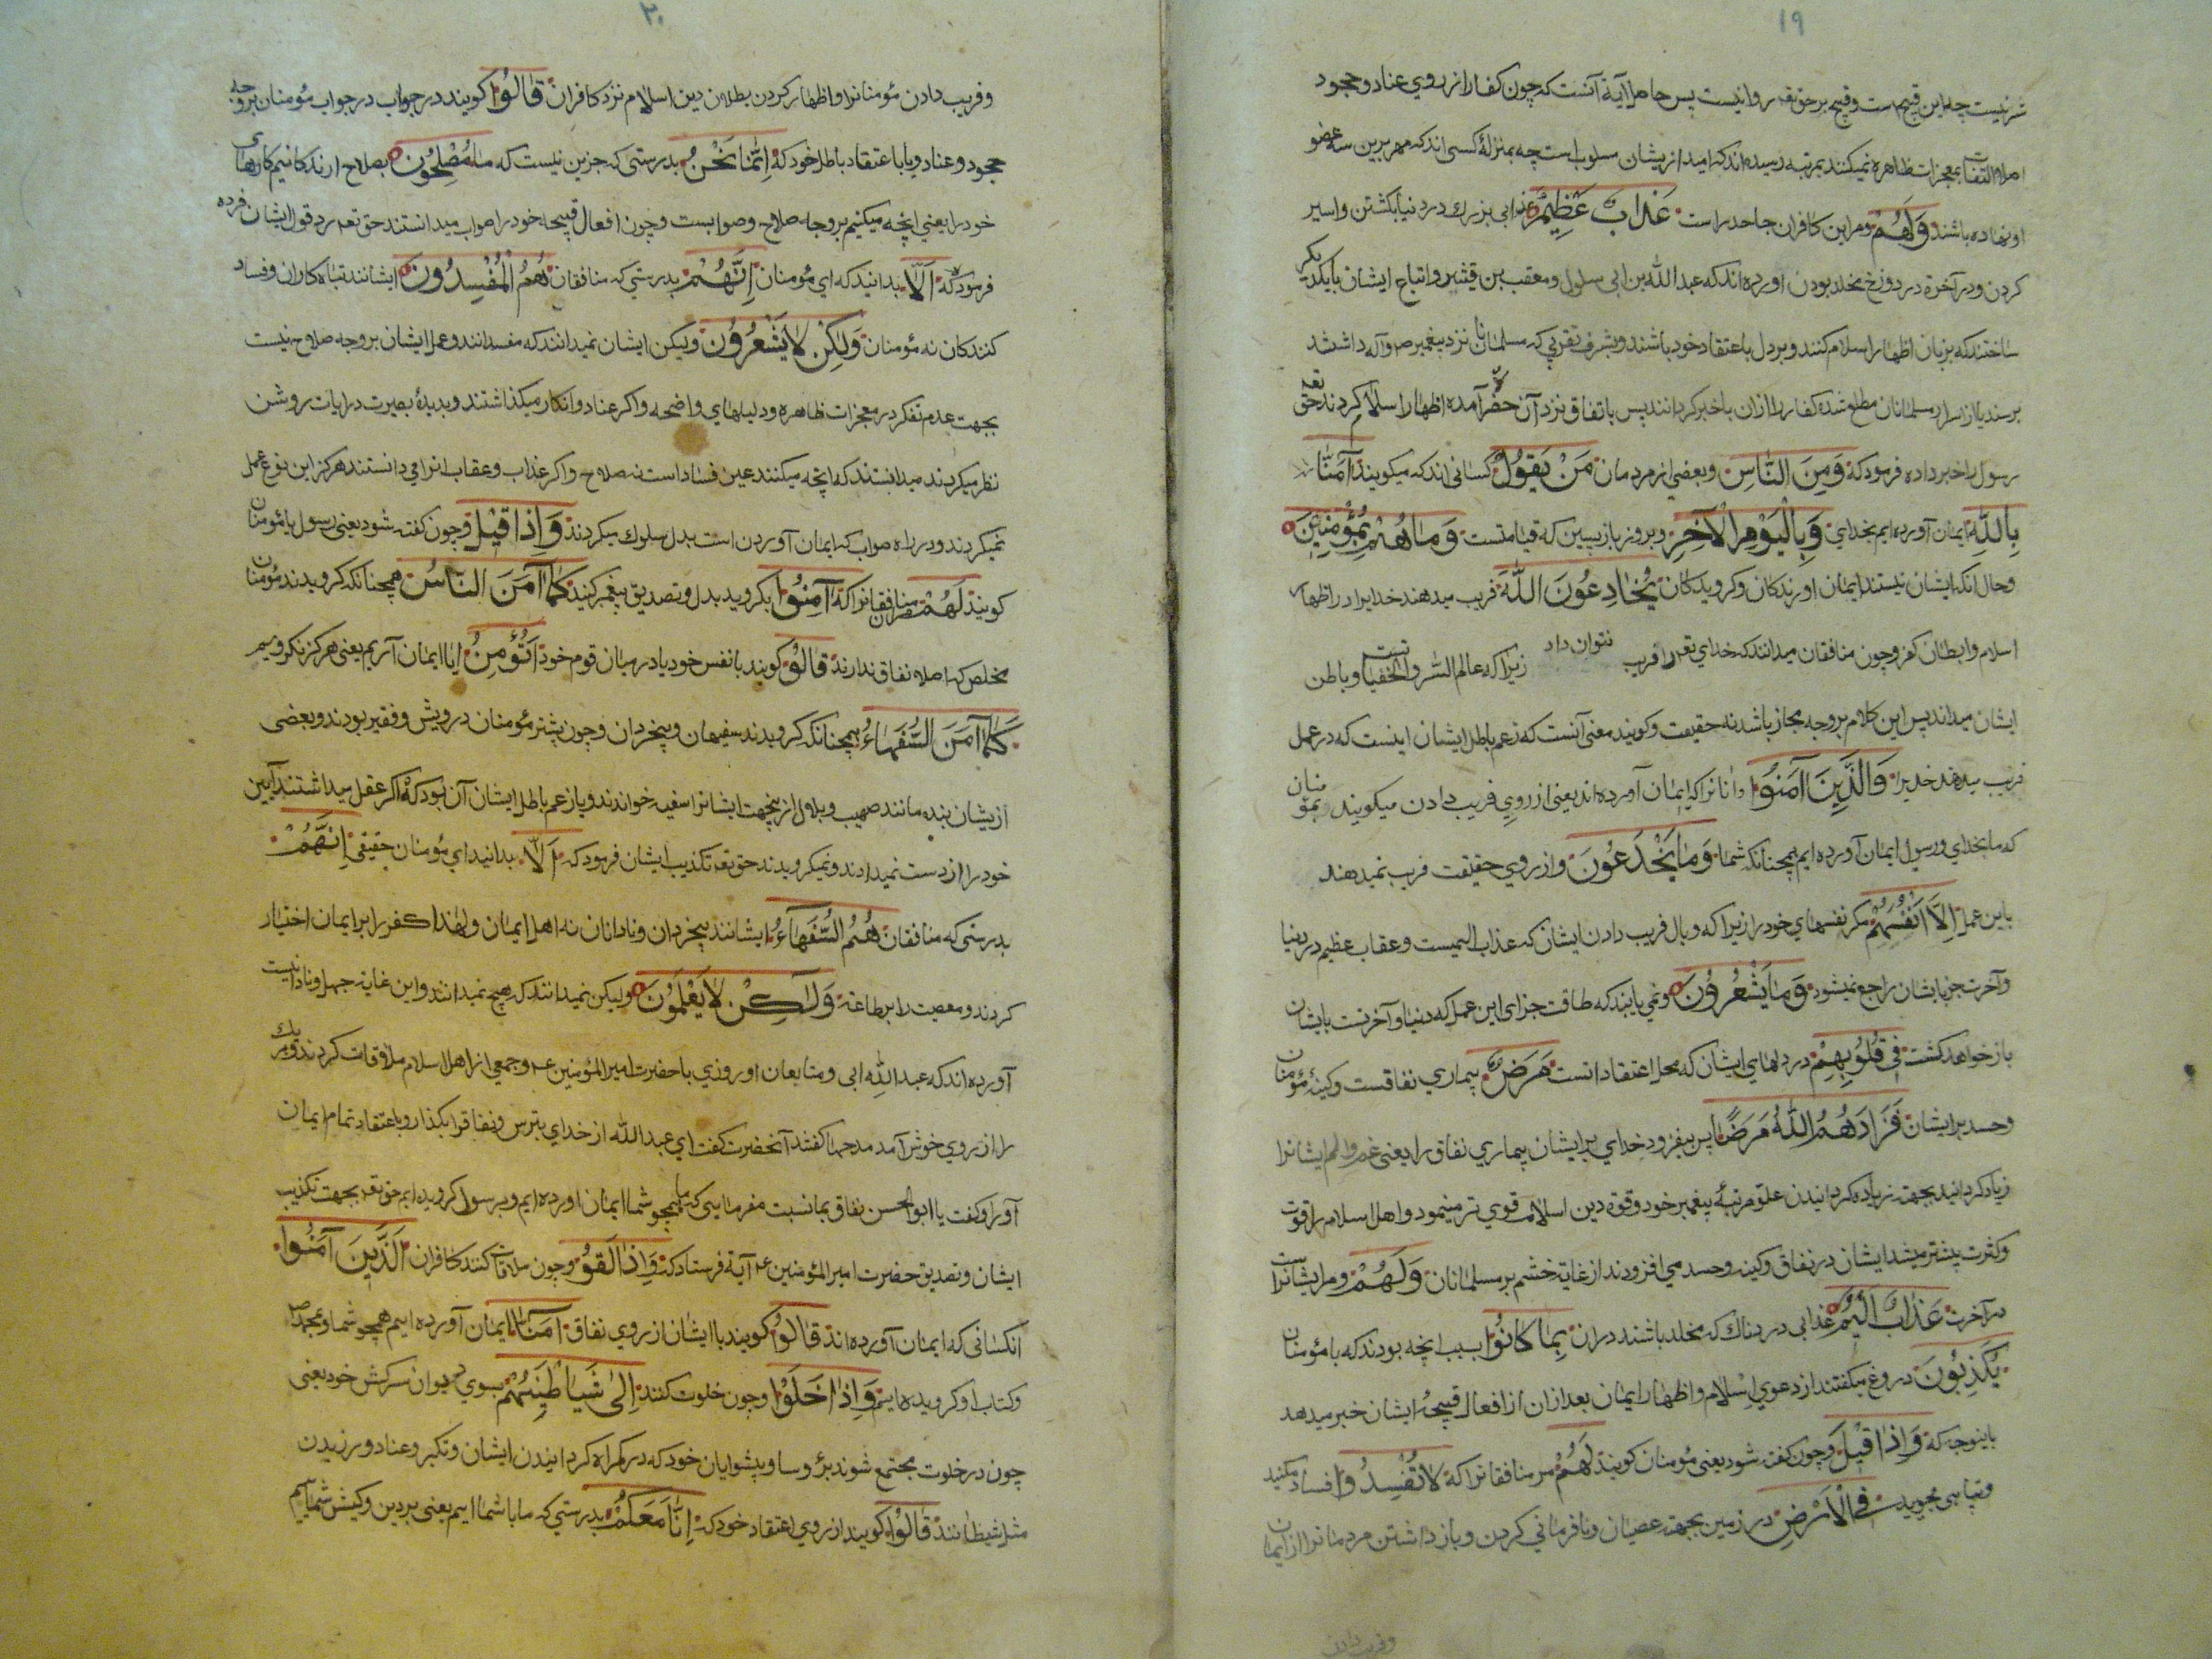 ۱۹
شر نیست چه این قبیح است و قبیح بر حق تعه روا نیست پس حاصل آیة آنست که چون کفار از روی عناد و جحود
اصلا التفات بمعجزات ظاهره نمیکنند بمرتبه رسیده اند که امید از ایشان مسلوب است چه بمنزلهٔ کسی اند که مهر برین سه عضو
او نهاده باشند وَلَهُمْ و مر این کافران جاحد راست عَذَابٌ عَظِيمٌ عذابی بزرک در دنیا بکشتن و اسیر
کردن و در آخرة در دوزخ مخلد بودن آورده اند که عبد الله بن ابی سلول و معقب بن قشیر و اتباع ایشان با یکدیکر
ساختند که بزبان اظهار اسلام کنند و بر دل باعتقاد خود باشند و بشرف تقربی که مسلمانان نزد پیغمبر ص و آله داشتند
برسند یا از اسرار مسلمانان مطلع شده کفار را از ان باخبر کردانند پس باتفاق نزد آن حضرة آمده اظهار اسلام کردند حق تعه
رسول را خبر داده فرمود که وَمِنَ النَّاسِ و بعضی از مردمان مَنْ يَقُولُ کسانی اند که میکویند آمَنَّا
بِاللّٰهِ ایمان آورده ایم بخدای وَبِالْيَوْمِ الْآخِرِ و بروز بازپسین که قیامتست وَمَا هُمْ بِمُؤْمِنِينَ
و حال انکه ایشان نیستند ایمان آورندکان و کرویدکان يُخَادِعُونَ اللّٰهَ فریب میدهند خدا یرا در اظهار
اسلام و ابطان کفر و چون منافقان میدانند که خدای تعه را فریب نتوان داد زیرا که عالم السّر و الخفیاتست و باطن
ایشان میداند پس این کلام بر وجه مجاز باشد نه حقیقت و کویند معنی آنست که زعم باطل ایشان اینست که در عمل
فریب میدهند خدیرا وَالَّذِينَ آمَنُوا و انانرا که ایمان آورده اند یعنی از روی فریب دادن میکویند بمؤمنان
که ما بخدای و رسول ایمان آورده ایم همچنانکه شما وَمَا يَخْدَعُونَ و از روی حقیقت فریب نمیدهند
باین عمل إِلَّا أَنْفُسَهُمْ مکر نفسهای خود را زیرا که وبال فریب دادن ایشان که عذاب الیمست و عقاب عظیم در دنیا
و آخرت جز بایشان راجع نمیشود وَمَا يَشْعُرُونَ و نمی یابند که طاقت جزای این عمل که دنیا و آخرتست بایشان
باز خواهد کشت فِي قُلُوبِهِمْ در دلهای ایشان که محل اعتقاد انست مَرَضٌ بیماری نفاقست و کینهٔ مؤمنان
و حسد بر ایشان فَزَادَهُمُ اللّٰهُ مَرَضًا پس بیفزود خدای بر ایشان بیماری نفاق را یعنی غم و الم ایشانرا
زیاد کردانید بجهت زیاده کردانیدن علو مرتبهٔ پیغمبر خود و قوة دین اسلام قوی تر مینمود و اهل اسلام را قوت
و کثرت بیشتر میشد ایشان در نفاق و کینه و حسد می افزودند از غایة خشم بر مسلمانان وَلَهُمْ و مر ایشانراست
در آخرت عَذَابٌ أَلِيمٌ عذابی دردناک که مخلد باشند در ان بِمَا كَانُوا بسبب انچه بودند که با مؤمنان
يَكْذِبُونَ دروغ میکفتند از دعوی اسلام و اظهار ایمان بعد ازان از افعال قبیحهٔ ایشان خبر میدهد
باینوجه که وَإِذَا قِيلَ و چون کفته شود یعنی مؤمنان کویند لَهُمْ مر منافقانرا که لَا تُفْسِدُوا فساد مکنید
و تباهی مجویید فِي الْأَرْضِ در زمین بجهت عصیان و نافرمانی کردن و باز داشتن مردمانرا از ایمان
و فریب دادن
۲۰
و فریب دادن مؤمنانرا و اظهار کردن بطلان دین اسلام نزد کافران قَالُوا کویند در جواب در جواب مؤمنان بر وجه
جحود و عناد و یا با اعتقاد باطل خود که إِنَّمَا نَحْنُ بدرستی که جزین نیست که ما مُصْلِحُونَ بصلاح ارندکانیم کارهای
خود را یعنی انچه میکنیم بر وجه صلاح و صوابست و چون افعال قبیحهٔ خود را صواب میدانستند حق تعه رد قول ایشان فرده
فرمود که أَلَا بدانید که ای مؤمنان إِنَّهُمْ بدرستی که منافقان هُمُ الْمُفْسِدُونَ ایشانند تباه کاران و فساد
کنندکان نه مؤمنان وَلٰكِنْ لَا يَشْعُرُونَ و لیکن ایشان نمیدانند که مفسدانند و عمل ایشان بر وجه صلاح نیست
بجهت عدم تفکر در معجزات ظاهره و دلیلهای واضحه و اکر عناد و انکار میکذاشتند و بدیدهٔ بصیرت در ایات روشن
نظر میکردند میدانستند که انچه میکنند عین فساد است نه صلاح و اکر عذاب و عقاب انرا می دانستند هرکز این نوع عمل
نمیکردند و در راه صواب که ایمان آوردن است بدل سلوک میکردند وَإِذَا قِيلَ و چون کفته شود یعنی رسول یا مؤمنان
کویند لَهُمْ مر منافقانرا که آمِنُوا بکروید بدل و تصدیق پیغمبر کنید كَمَا آمَنَ النَّاسُ همچنانکه کرویدند مؤمنان
مخلص که اصلا نفاق ندارند قَالُوا کویند با نفس خود یا در میان قوم خود أَنُؤْمِنُ ایا ایمان آریم یعنی هرکز نکرویم
كَمَا آمَنَ السُّفَهَاءُ همچنانکه کرویدند سفیهان و بیخردان و چون بیشتر مؤمنان درویش و فقیر بودند و بعضی
ازیشان بنده مانند صهیب و بلال از ینجهت ایشانرا سفیه خواندند و یا زعم باطل ایشان آن بود که اکر عقل میداشتند آیین
خود را از دست نمیدادند و نمیکرویدند حق تعه تکذیب ایشان فرمود که أَلَا بدانید ای مؤمنان حقیقی إِنَّهُمْ
بدرستی که منافقان هُمُ السُّفَهَاءُ ایشانند بیخردان و نادانان نه اهل ایمان و لهٰذا کفر را بر ایمان اختیار
کردند و معصیت را بر طاعة وَلٰكِنْ لَا يَعْلَمُونَ و لیکن نمیدانند که هیچ نمیدانند و این غایة جهل و نادانیست
آورده اند که عبد اللّٰه ابی و متابعان او روزی با حضرت امیر المؤمنین ع و جمعی از اهل اسلام ملاقات کردند و هر یک
را از روی خوش آمد مدحها کفتند آنحضرت کفت ای عبد اللّٰه از خدای بترس و نفاقرا بکذار و با اعتقاد تمام ایمان
آور او کفت یا ابو الحسن نفاق بما نسبت مفرمایی که ما همچو شما ایمان اورده ایم و برسول کرویده ایم حق تعه بجهت تکذیب
ایشان و تصدیق حضرت امیر المؤمنین ع آیة فرستاد که وَإِذَا لَقُوا و چون ملاقات کنند کافران الَّذِينَ آمَنُوا
انکسانی که ایمان آورده اند قَالُوا کویند با ایشان از روی نفاق آمَنَّا ما ایمان آورده ایم همچو شما و بمحمد ص
و کتاب او کرویده ایم وَإِذَا خَلَوْا و چون خلوت کنند إِلَىٰ شَيَاطِينِهِمْ بسوی دیوان سرکش خود یعنی
چون در خلوت مجتمع شوند برؤسا و پیشوایان خود که در کمراه کردانیدن ایشان و تکبر و عناد ورزیدن
مثل شیطانند قَالُوا کویند از روی اعتقاد خود که إِنَّا مَعَكُمْ بدرستی که ما با شما ایم یعنی بر دین و کیش شماییم